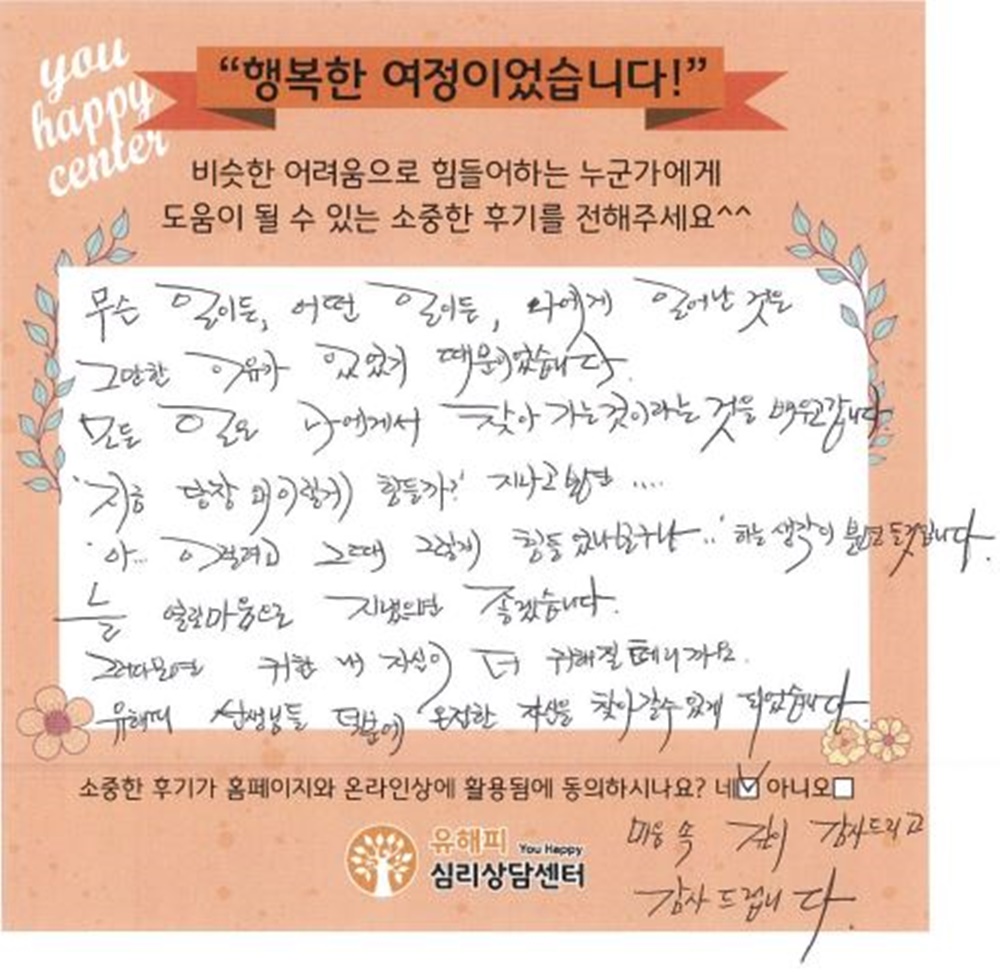 you
happy
center
“행복한 여정이었습니다!”
비슷한 어려움으로 힘들어하는 누군가에게
도움이 될 수 있는 소중한 후기를 전해주세요^^
무슨 일이든, 어떤 일이든, 나에게 일어난 것은
그만한 이유가 있었기 때문이었습니다.
모든 일은 나에게서 찾아 가는것이라는 것을 배우고갑니다.
'지금 당장 왜이렇게 힘들까?' 지나고보면 ....
'아... 이걸려고 그때 그렇게 힘들었나보구나..' 하는 생각이 분명 들것입니다.
늘 열린마음으로 지냈으면 좋겠습니다.
그러다보면 귀한 내 자신이 더 귀해질 테니까요.
유해피 선생님들 덕분에 온전한 자신을 찾아갈수있게 되었습니다.
소중한 후기가 홈페이지와 온라인상에 활용됨에 동의하시나요? 네☑ 아니오□
유해피 You Happy
심리상담센터
마음 속 깊이 감사드리고
감사드립니다.